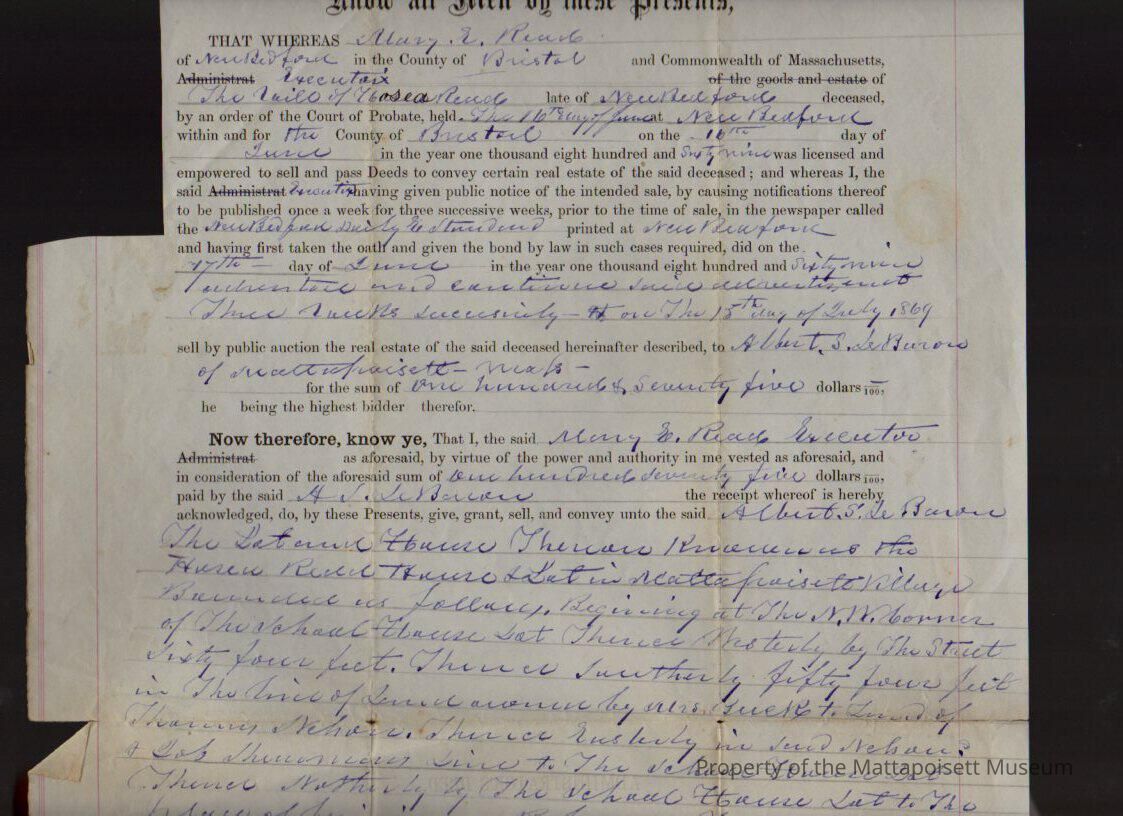 Know all Men by these Presents,
THAT WHEREAS Mary E. Read
of New Bedford in the County of Bristol and Commonwealth of Massachusetts,
Administrat Executrix of the goods and estate of
The Will of Hosea Read late of New Bedford deceased,
by an order of the Court of Probate, held The 16th day of June at New Bedford
within and for the County of Bristol on the 16th day of
June in the year one thousand eight hundred and Sixty nine was licensed and
empowered to sell and pass Deeds to convey certain real estate of the said deceased; and whereas I, the
said Administrat Executrix having given public notice of the intended sale, by causing notifications thereof
to be published once a week for three successive weeks, prior to the time of sale, in the newspaper called
the New Bedford Daily E. Standard printed at New Bedford
and having first taken the oath and given the bond by law in such cases required, did on the
17th day of June in the year one thousand eight hundred and Sixty nine
advertise and continue said advertisement
Three weeks Successively on The 15th day of July 1869
sell by public auction the real estate of the said deceased hereinafter described, to Albert. S. Le Baron
of Mattapoisett - Mass -
for the sum of One hundred & Seventy five dollars 100,
he being the highest bidder therefor.
Now therefore, know ye, That I, the said Mary E. Read Executor
Administrat as aforesaid, by virtue of the power and authority in me vested as aforesaid, and
in consideration of the aforesaid sum of One hundred seventy five dollars 100,
paid by the said A. S. Le Baron the receipt whereof is hereby
acknowledged, do, by these Presents, give, grant, sell, and convey unto the said Albert. S. Le Baron
The Lot and House Thereon Known as the
Hosea Read House & Lot in Mattapoisett Village
Bounded as follows, Begining at The N.W. Corner
of The School House Lot Thence Westerly by The Street
Sixty four feet. Thence Southerly fifty four feet
in The line of Land owned by Mrs. to Land of
Thomas Nelson. Thence Easterly in said Nelson
& line to The School House Lot
Thence Northerly by The School House Lot to The
Property of the Mattapoisett Museum